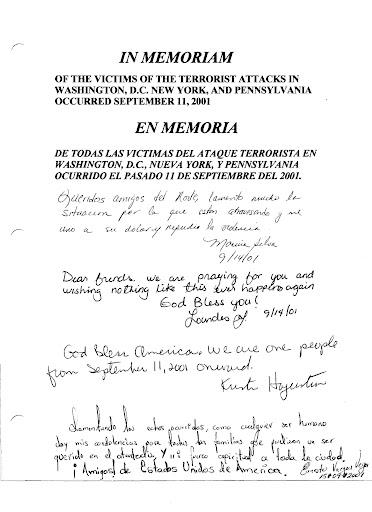 IN MEMORIAM
OF THE VICTIMS OF THE TERRORIST ATTACKS IN
WASHINGTON, D.C. NEW YORK, AND PENNSYLVANIA
OCCURRED SEPTEMBER 11, 2001
EN MEMORIA
DE TODAS LAS VICTIMAS DEL ATAQUE TERRORISTA EN
WASHINGTON, D.C., NUEVA YORK, Y PENNSYLVANIA
OCURRIDO EL PASADO 11 DE SEPTIEMBRE DEL 2001.
Queridos amigos del lamento mucho la
situacion por la que estan atravesando y me
uno a su dolor y repudio la violencia
Silva
9/14/01
Dear friends. we are praying for you and
wishing nothing like this ever happens again
God Bless you!
Lourdes 9/14/01
God Bless America. We are one people
from September 11, 2001 onward.
Lamentando los actos ocurridos, como cualquier ser humano
doy mis condolencias para todas las familias que un ser
querido en el atentado, y mi fuerza espiritual a toda la ciudad.
¡Amigos! de Estados Unidos de America. Ernesto Vargas
15*09*2001